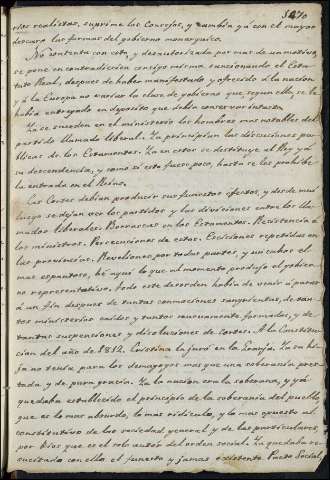 5470
des realistas, suprime los Consejos, y cambia ya con el mayor
descaro las formas del gobierno monarquico.
No contenta con esto, y desautorizada por mas de un motivo,
se pone en contradiccion consigo misma sancionando el Esta-
tuto Real, despues de haber manifestado y ofrecido á la nacion
y á la Europa no variar la clase de gobierno que segun ella, se la
habia entregado en deposito que debia conservar intacto.
Ya se suceden en el ministerio los hombres mas notables del
partido llamado liberal. Ya principian las discusiones pu-
blicas de los Estamentos. Ya en estos se destituye al Rey y á
su descendencia, y como si esto fuese poco, hasta se les prohibe
la entrada en el Reino.
Las Cortes debian producir sus funestos efectos, y desde mui
luego se dejan ver los partidos y las divisiones entre los lla-
mados liberales. Borrascas en los Estamentos. Resistencia á
los ministros. Persecuciones de estos. Escisiones repetidas en
las provincias. Rebeliones por todas partes, y un cahos el
mas espantoso, hé aqui lo que al momento produjo el gobier-
no representativo. Todo este desorden habia de venir á parar
á un fin despues de tantas conmociones sangrientas, de tan-
tos ministerios caidos y tantos nuevamente formados, y de
tantas suspenciones y disoluciones de Cortes. A la Constitu-
cion del año de 1812. Cristina la juró en la Granja. Ya su hi-
ja no tenia para los demagogos mas que una soberania pres-
tada y de pura gracia. Ya la nacion era la soberana, y yá
quedaba establecido el principio de la soberania del pueblo,
que es lo mas absurdo, lo mas ridiculo, y lo mas opuesto al
constitutivo de las sociedad general y de las particulares,
por Dios que es el solo autor del orden social. Ya quedaba re-
sucitado con ella el funesto y jamas existente Pacto Social,